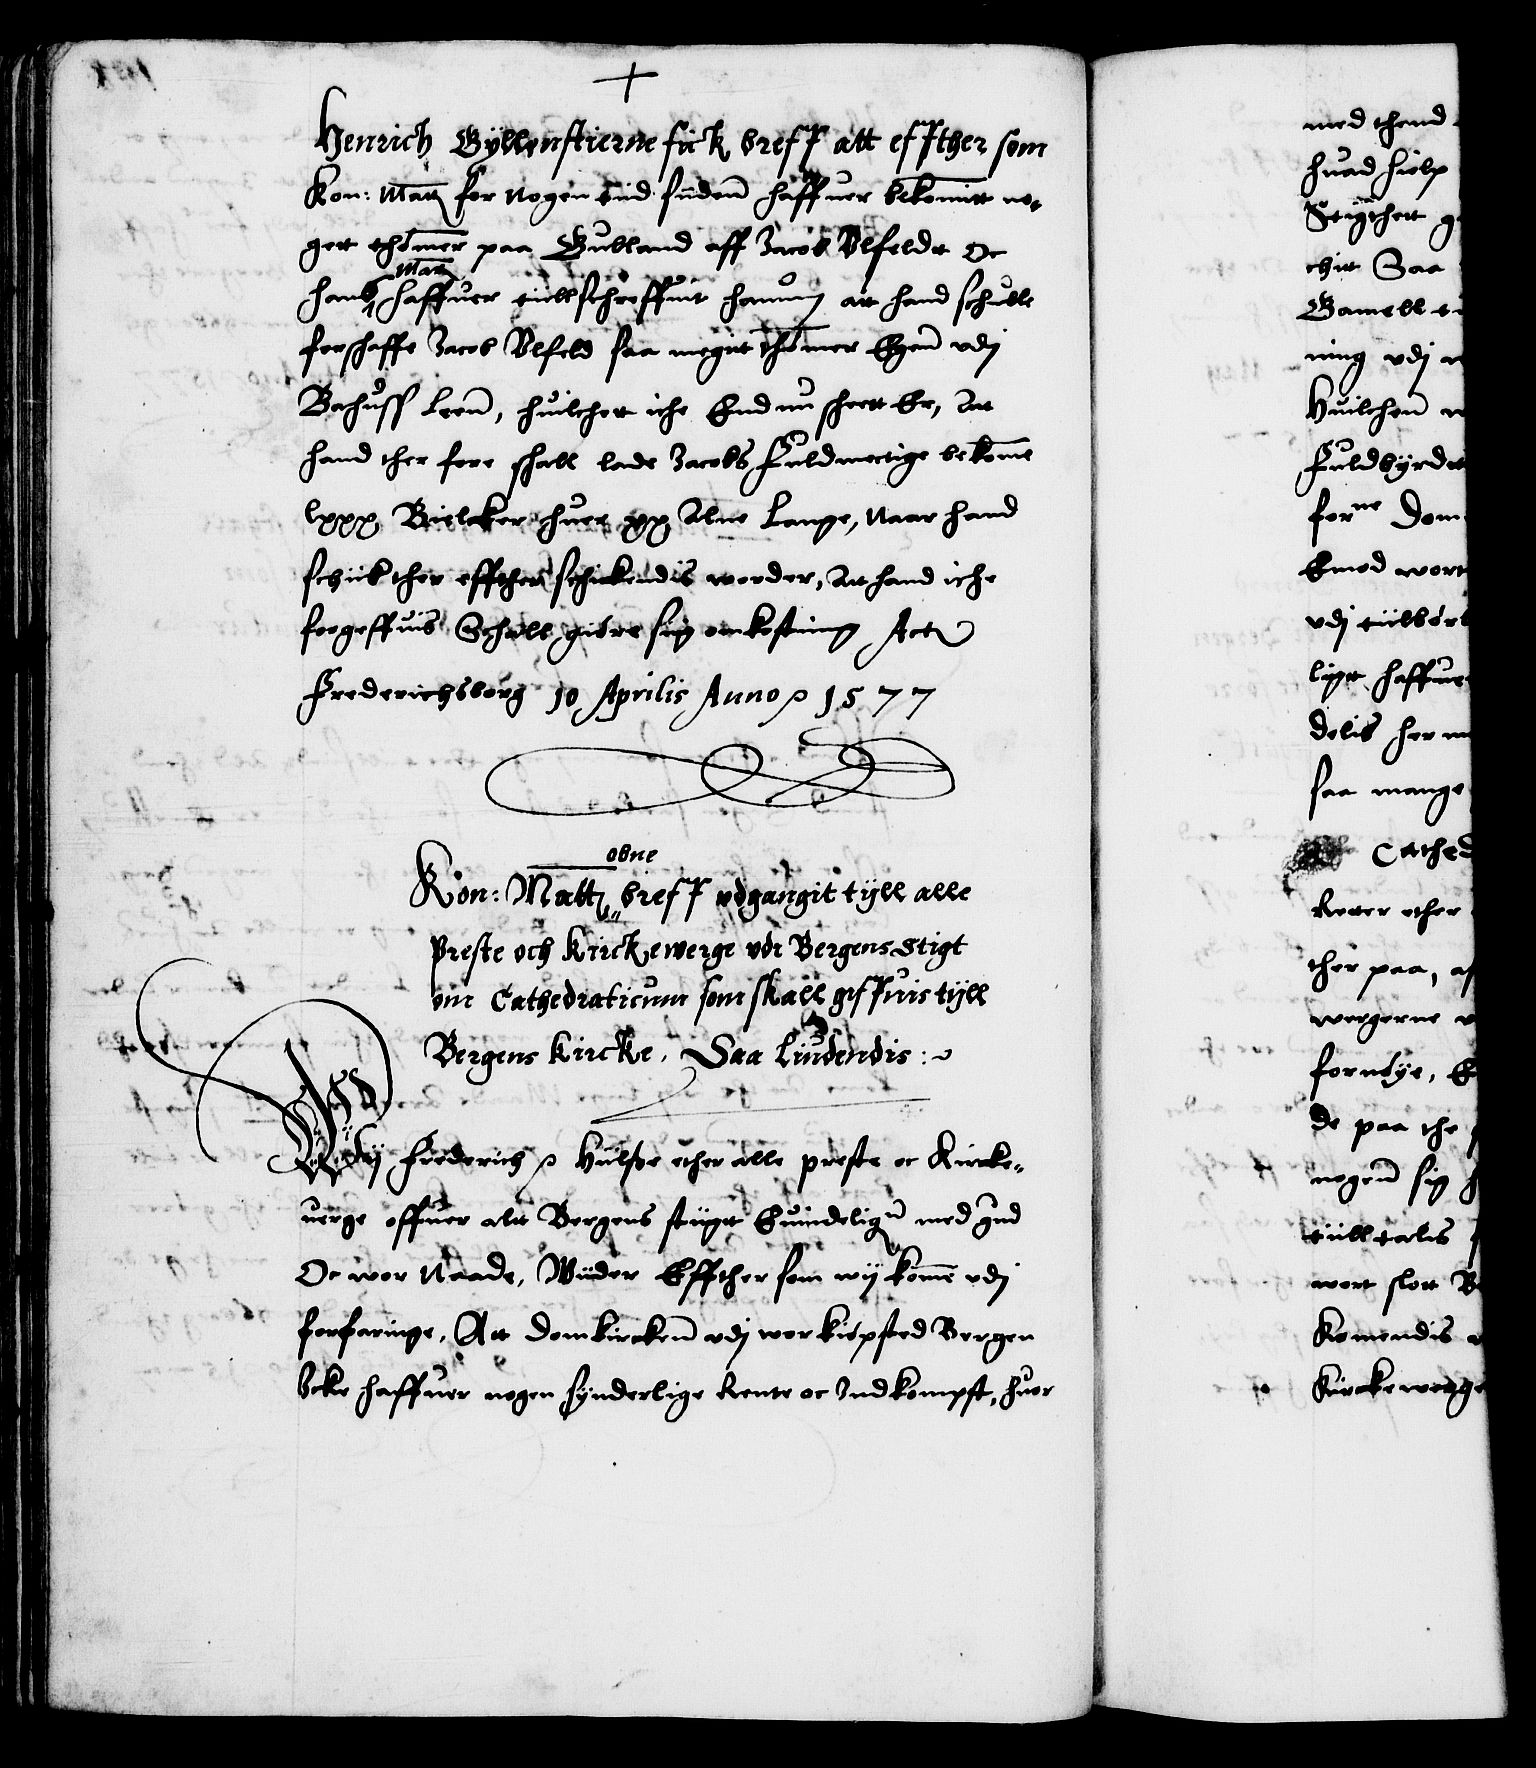 Henrich Gyllenstierne fick breff att effther som
Kon: Matt for nogen tiid siiden haffuer bekomitt no-
gett thømer paa Gulland aff Jacob Vlfeldt Oc
hans Matt haffuer tiillschreffuit hanum att hand schulle
forskaffe Jacob Vlfeld saa megitt thømer Egen vdj
Bahuss Leen, huilchett iche End nu skeett Er, Att
hand ther fore skall lade Jacobs Fuldmectige bekome
lxxx Bielcker huer xx Alne Lange, Naar hand
schiib ther effther schickendis worder, Att hand iche
forgeffuis Schall giøre sig omkostning Actum
Frederichsborg 10 Aprilis Anno 1577
Kon: Matts obne breff vdgangit tyll alle
Preste och Kirckewerge vdi Bergens Stigt
om Cathedraticum som skall geffuis tyll
Bergens Kircke. Saa liudendis:
Wy Frederich Hulsze ether alle preste oc Kircke-
uerge offuer alt Bergens stiigt Euindeligen med gud
Oc wor Naade, Wiider Effther som wij kome vdj
forfaringe, Att Domkircken vdj wor kiøpsted Bergen
Icke haffuer nogen synderlige Rente oc Indkompst, huor
med thend
huad hielp
Stigthett
chit Saa
Gamell
ning vdj
Huilchen
Fuldbyrdet
forne Dom
Emod wort
vdj tiilbør
ligt haffue
delis her
saa mange
Cathed
Retter ether
ther paa,
wergerne
fornøye,
de paa the
nogen sig
tiilltalis
wort slott
Komendis
Kirckewerge